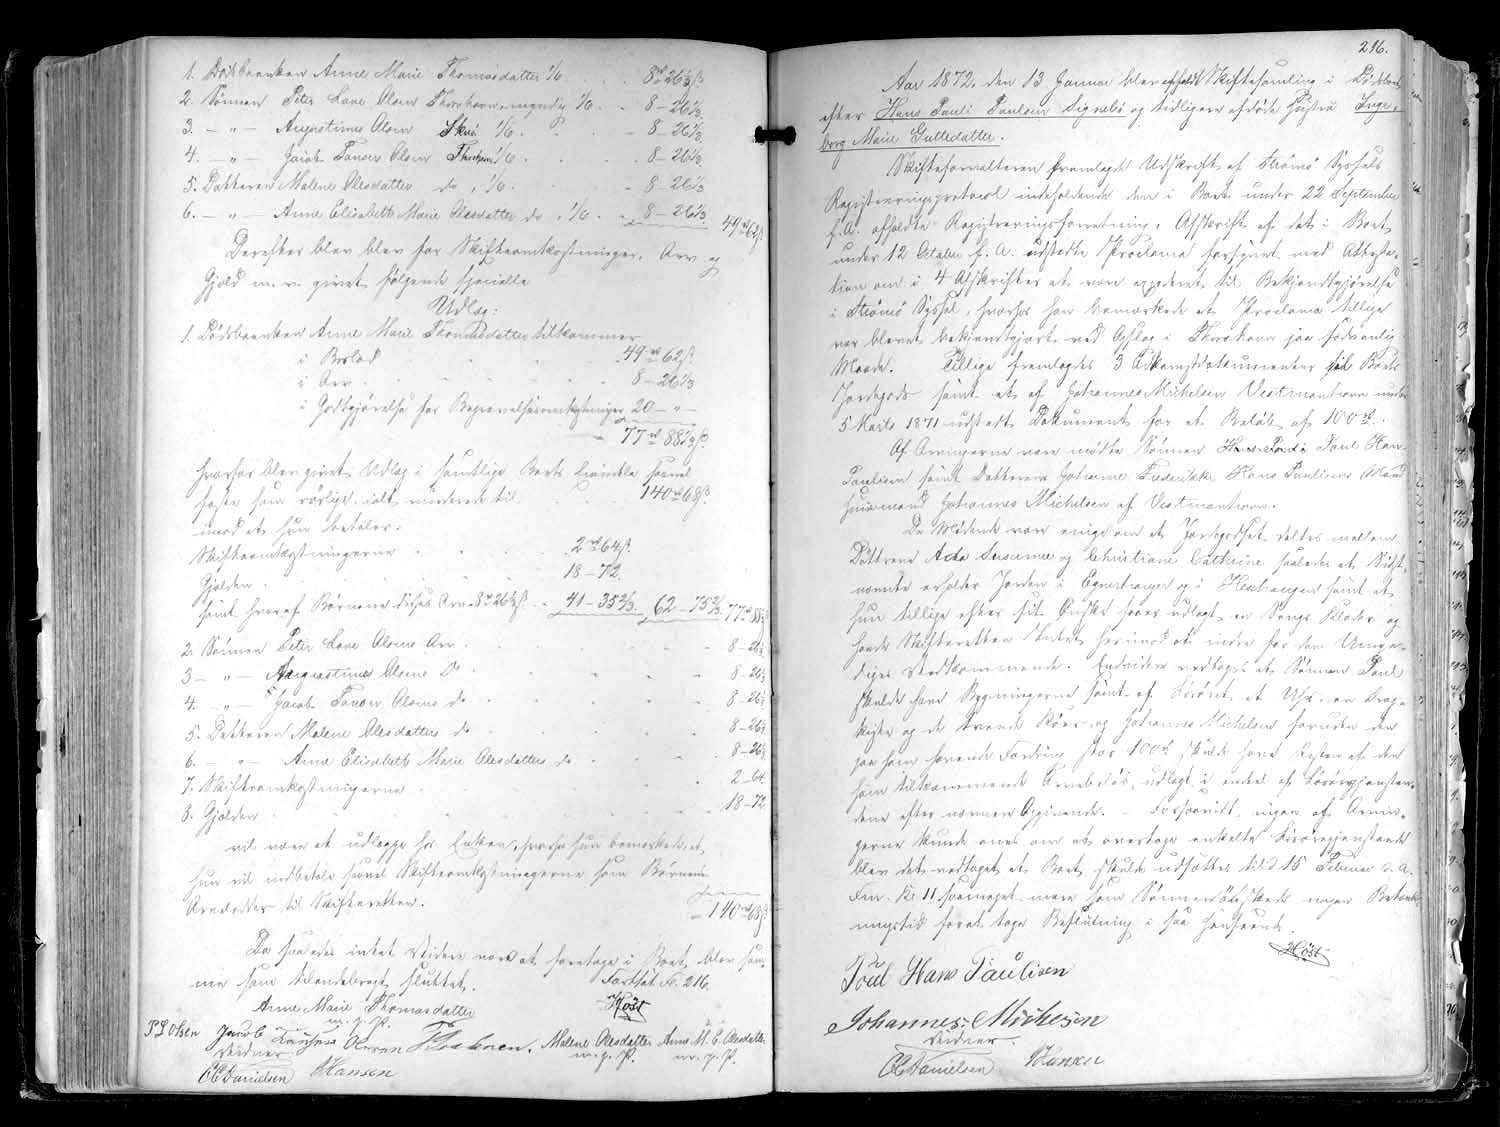 1. Dødsboenken Anne Marie Thomasdatter 1/6 8rd 26 2/3 ß
2. Sønnen Peter Lane Olsen Thorshavn, myndig 1/6 8 - 26 2/3
3. - " - Augustinus Olsen 1/6 8 - 26 2/3
4. - " - Jacob Olsen 1/6 8 - 26 2/3
5. Datteren Malene Olesdatter do, 1/6 8 - 26 2/3
6. - " - Anne Elisabeth Marie Olesdatter do, 1/6 8 - 26 2/3 49rd 62ß
Derefter blev blev for Skifteomkostninger, Arv og
Gjæld m. v. givet følgende specielle
Udlæg:
1. Dødsboenken Anne Marie Thomasdatter tilkommer
i Boslod 49rd 62ß
i Arv 8 - 26 2/3
i Godtgjørelse for Begravelsesomkostninger 20 - " -
77rd 88 2/3 ß
hvorfor blev givet Udlæg i samtlige Boets
140rd 68ß
imod at hun betaler:
Skifteomkostningerne 2rd 64ß
Gjælden 18 - 72
samt hver af Børnene disses Arv 8rd 26 2/3 ß 41 - 35 2/3 62 - 75 2/3 77rd 88 2/3
2. Sønnen Peter Lane Olsens Arv 8 - 26 2/3
3 - " - Augustinus Olsens Do 8 - 26 2/3
4. - " - Jacob Olsens do 8 - 26 2/3
5. Datteren Malene Olesdatters do 8 - 26 2/3
6. - " - Anne Elisabeth Marie Olesdatters do 8 - 26 2/3
7. Skifteomkostningerne 2 - 64
8. Gjælden 18 - 72
vil være at udlægge hos Enken, hvorfor hun bemærkede, at
hun vil indbetale saavel Skifteomkostningerne som Børnenes
Arvelodder til Skifteretten.
140rd 68ß
Da saaledes intet videre var at foretage i Boet, blev sam-
me som tilendebragt sluttet. Fortsat Fo. 216.
Anne Marie Thomasdatter Høst
m. f. P.
P L Olsen Jacob Olesen Malene Olesdatter Anne M. E. Olesdatter
Vidner m. f. P. m. f. P.
O C Danielsen J Hansen
216.
Aar 1872, den 13 Januar blev afholdt Skiftesamling i Dødsboet
efter Hans Pauli Paulsen Signebø og tidligere afdøde Hustru Inge-
borg Marie Guttesdatter.
Skifteforvalteren fremlagde Udskrift af Strømø Syssels
Registreringsprotocol indeholdende den i Boet under 22 September
f. A. afholdte Registreringsforretning, Afskrift af det i Boet
under 12 October f. A. udstedte Proclama forsynet med Attesta-
tion om i 4 Afskrifter at være expederet til Bekjendtgjørelse
i Strømø Syssel, hvorhos han bemærkede at Proclama tillige
var blevet bekjendtgjort ved Opslag i Thorshavn paa sædvanlig
Maade. Tillige fremlagdes 3 Adkomstdokumenter til Boets
Jordegods samt et af Johannes Michelsen Vestmanhavn under
5 Marts 1871 udstedt Dokument for et Beløb af 100rd.
Af Arvingerne vare mødte Sønnen Hans Pauli Poul Han-
Paulsen samt Datteren Johanne Frederikke Hans Paulsens Mand
Huusmand Johannes Michelsen af Vestmanhavn.
De Mødende vare enige om at Jordegodset deltes mellem
Døttrene Ada Susanne og Christiane Cathrine saaledes at Sidst-
nævnte erholder Jorden i og i samt at
hun tillige efter sit Ønske faaer udlagt en Sengs Klæder og
havde Skifteretten Intet herimod at indre for den Umyn-
diges Vedkommende. Endvidere vedtoges at Sønnen Poul
skulde have Bygningerne samt af Løsøret et Uhr, en
Kiste og de tvende Køer, og Johannes Michelsen foruden den
paa ham havende Fordring stor 100rd skulde have Resten af den
ham tilkommende Arvelod udlagt i endel af Løsøregjenstan-
dene efter nærmere Opgivende. - Forsaavidt ingen af Arvin-
gerne kunde enes om at overtage enkelte Løsøregjenstande
blev det vedtaget at Boet skulde udsættes til d 15 Februar d. A.
Fm. Kl. 11 saameget mere som Sønnen ønskede nogen Betænk-
ningstid forat tage Beslutning i saa Henseende.
Høst
Poul Hans Paulisen
Johannes Michesen
Vidner.
O C Danielsen J Hansen